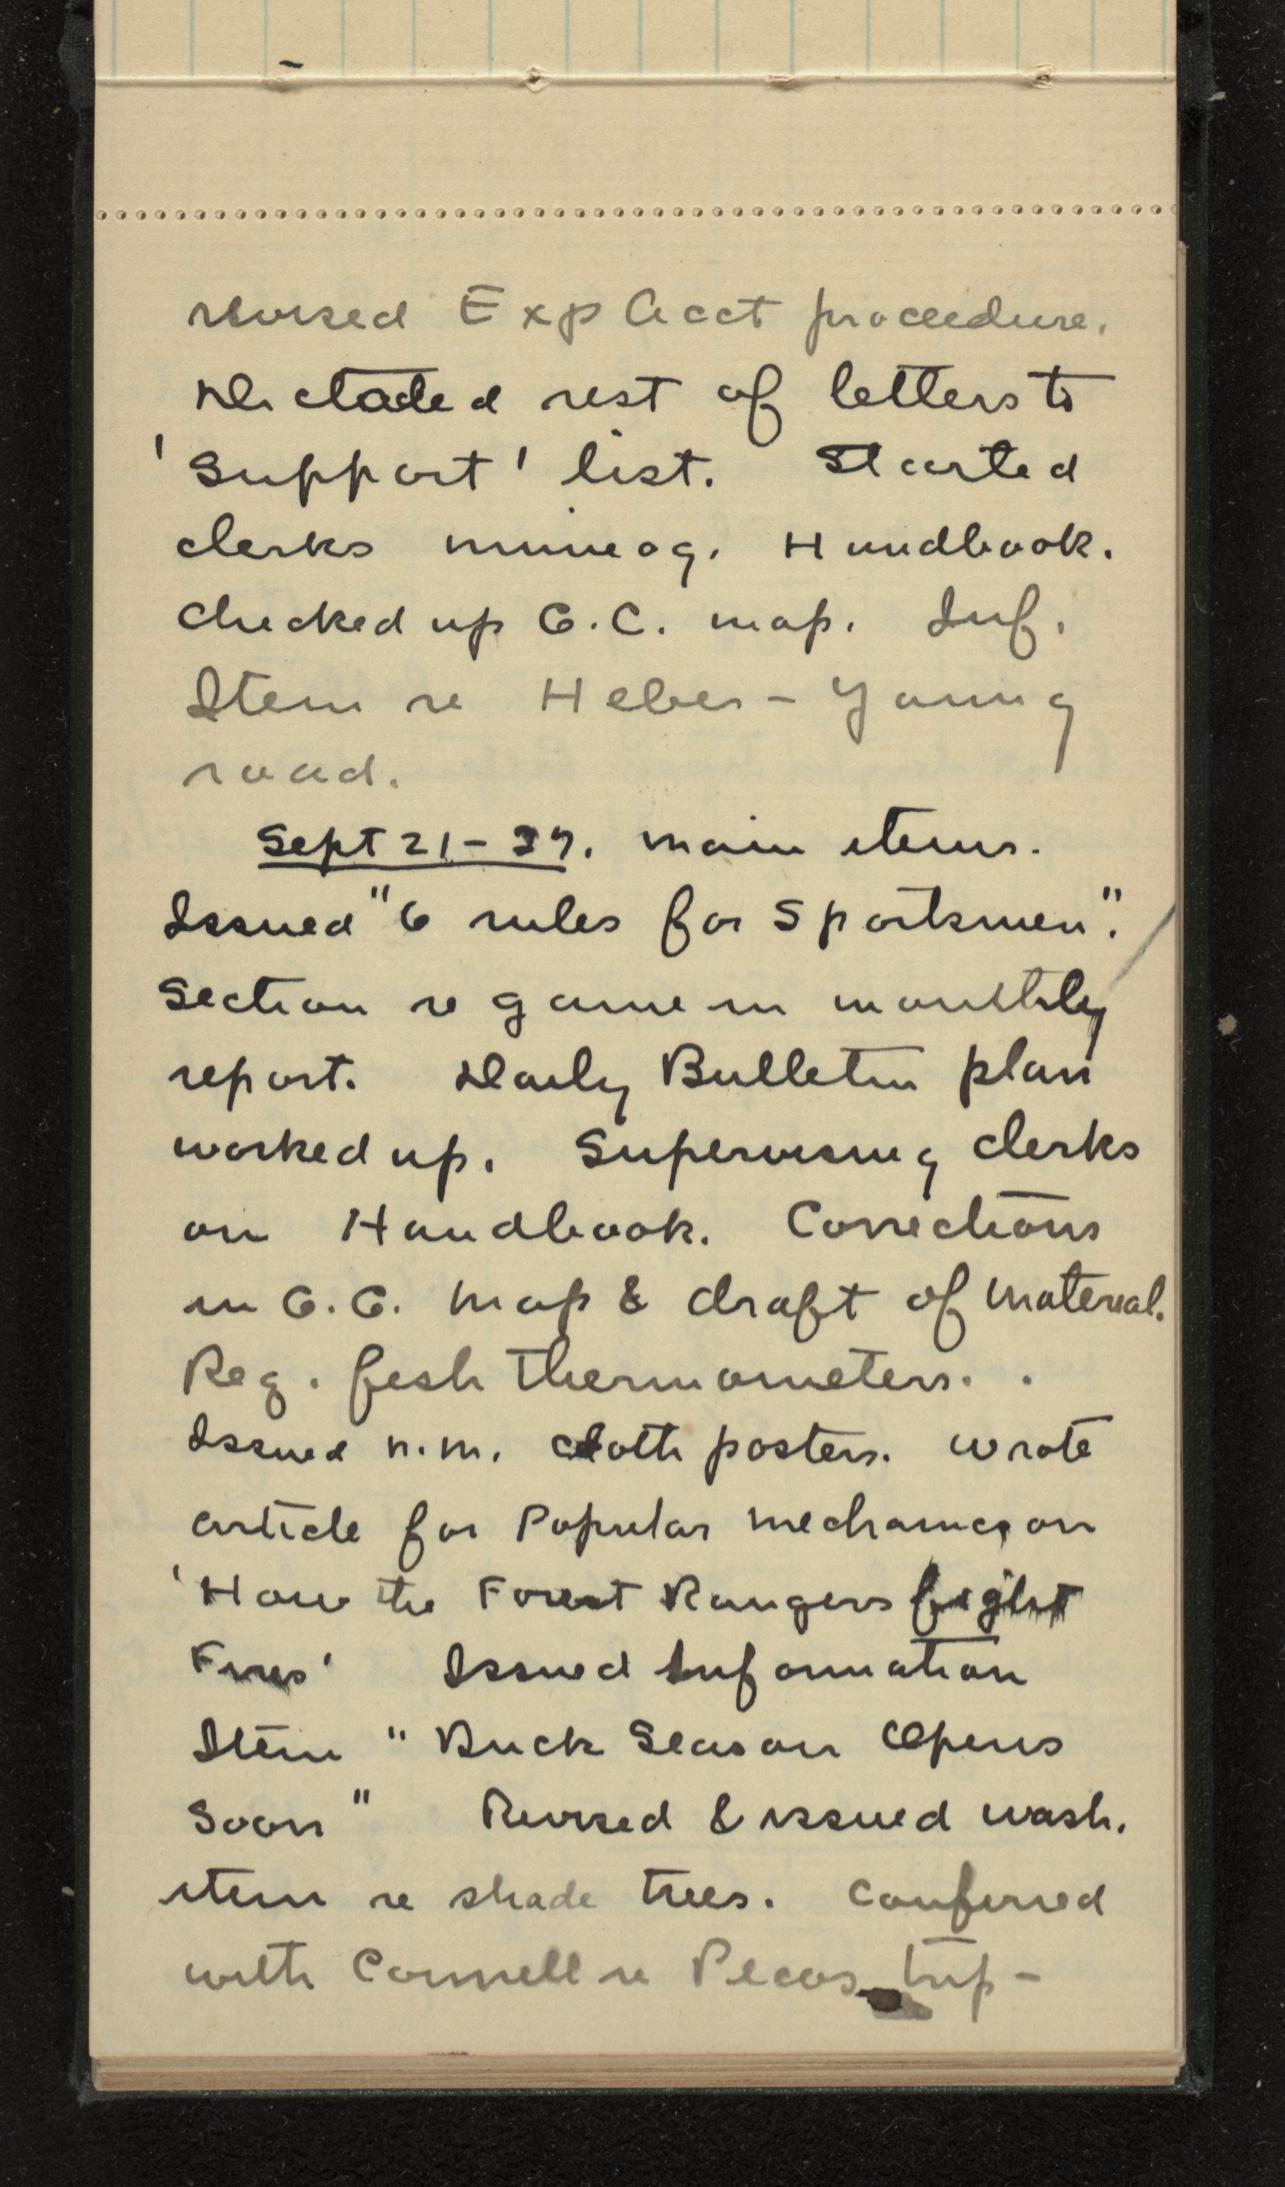 revised Exp Acct proceedure.
Dictated rest of letters to
'Support' list. Started
clerks mimeog. Handbook.
Checked up G.C. map. Inf.
Item re Heber-Young
road.
Sept 21-27. Main items.
Issued "6 rules for Sportsmen".
Section re game in monthly
report. Daily Bulletin plan
worked up. Supervising clerks
on Handbook. Corrections
in G.C. Map & draft of material.
Req. fish thermometers.
Issued N.M. cloth posters. Wrote
article for Popular Mechanics on
'How the Forest Rangers fight
Fires' Issued Information
Item "Buck Season Opens
Soon" Revised & issued Wash.
item re shade trees. Conferred
with Connell re Pecos trip-